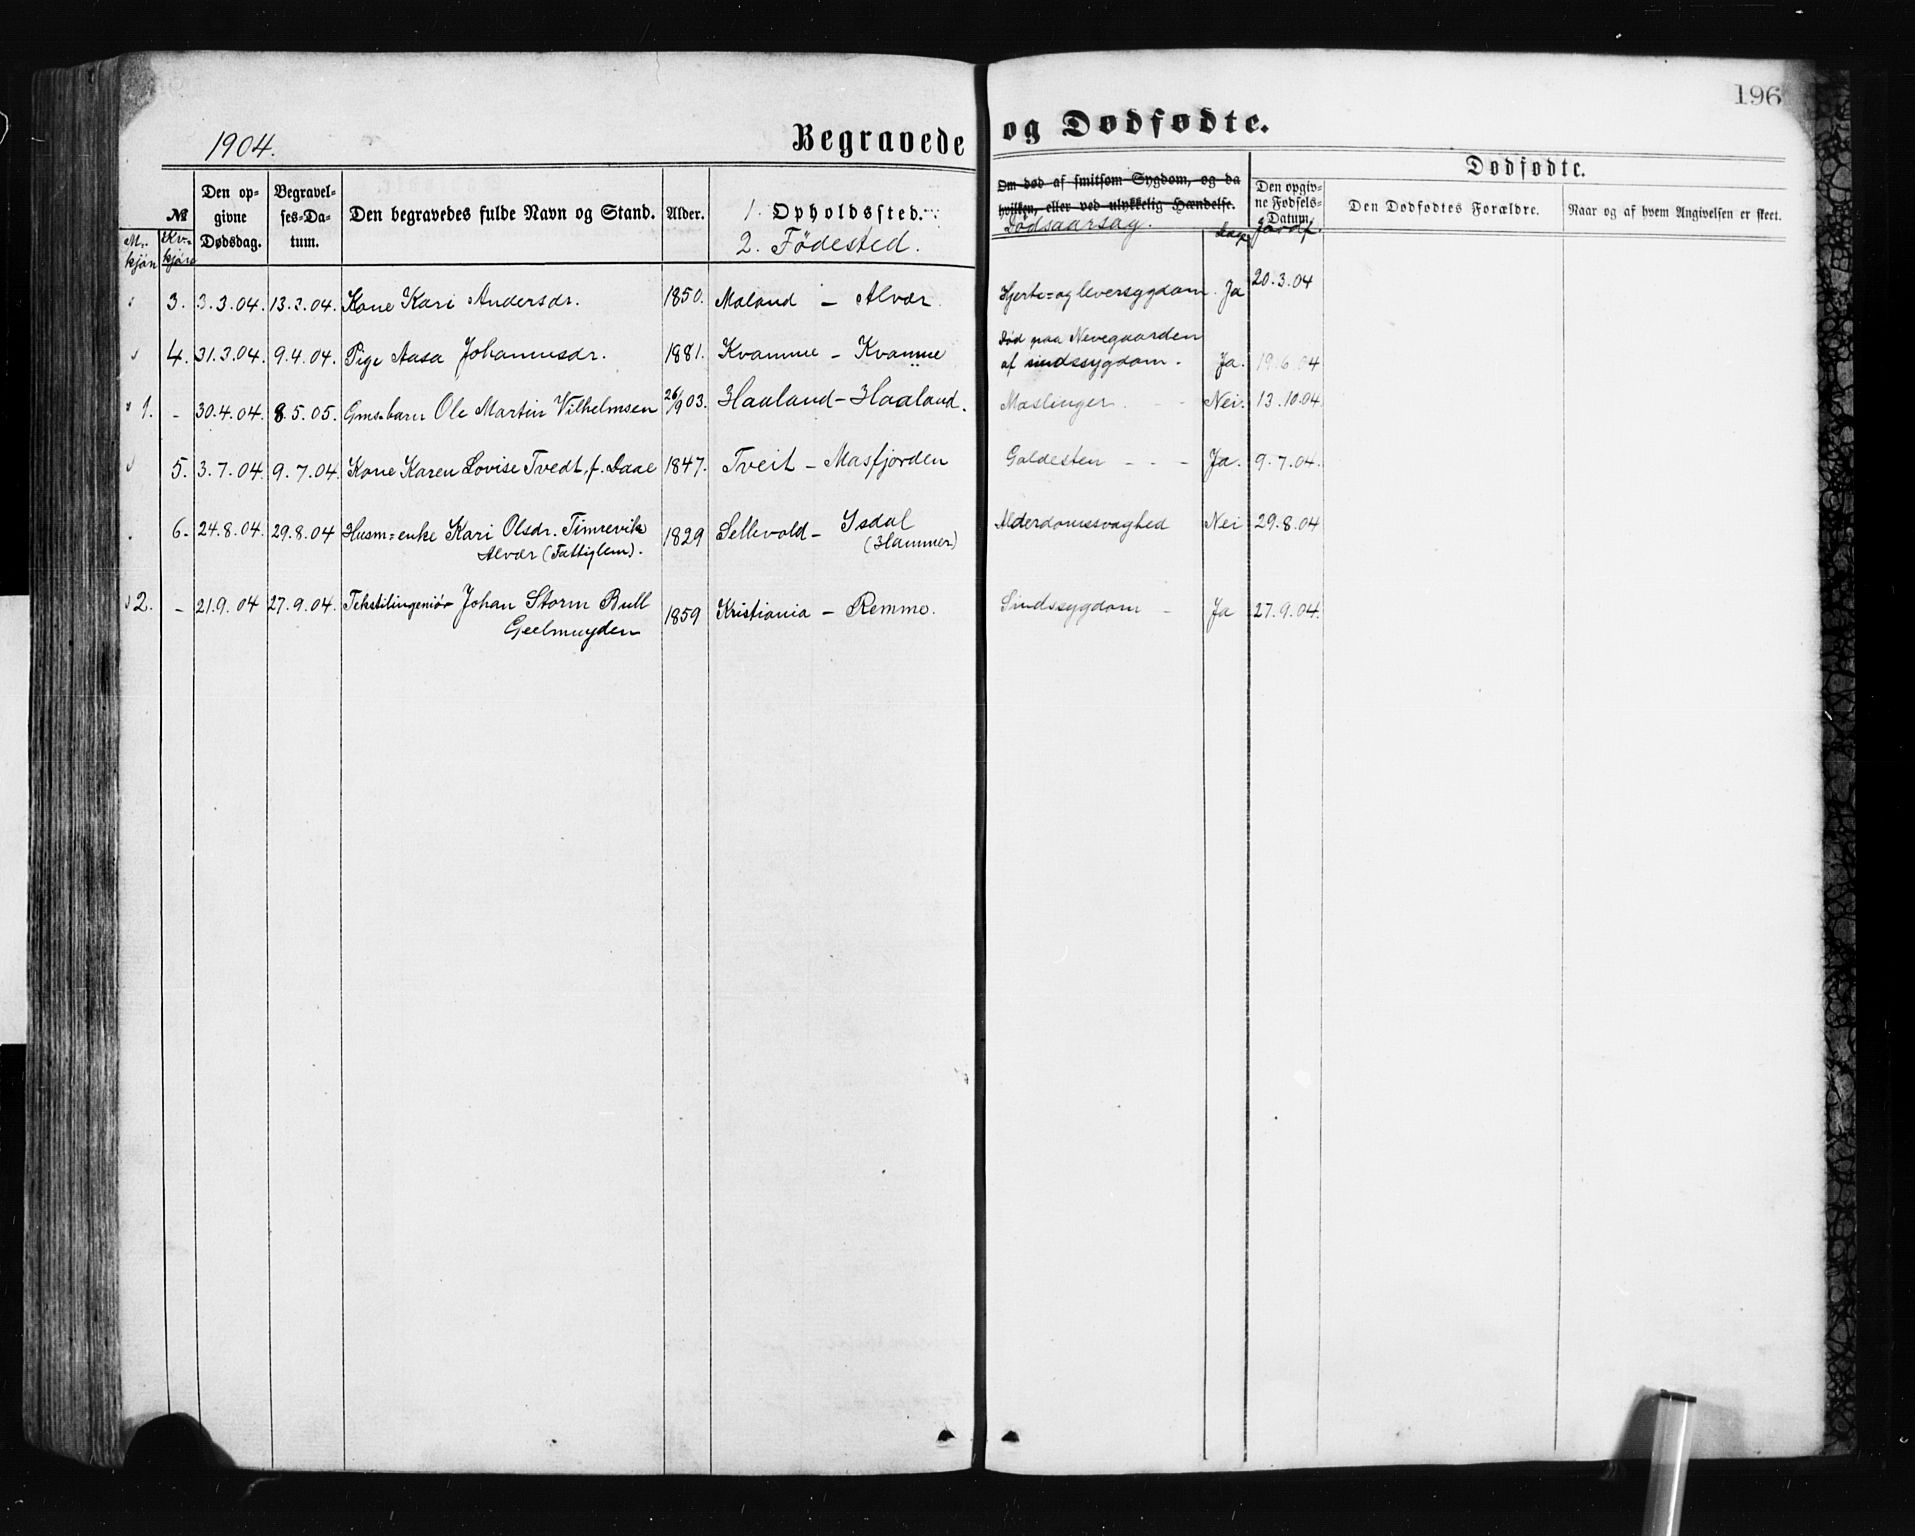 196
1904.
Begravede og Dødfødte.
Dødfødte.
M.kjøn
№
Kv.kjøn
Den opgivne Dødsdag.
Begravelses-Datum.
Den begravedes fulde Navn og Stand.
Alder.
1. Opholdssted.
2. Fødested.
Om død af smitsom Sygdom, og da hvilken, eller ved ulykkelig Hændelse.
Dødsaarsag.
Læge
Den opgivne Fødsels-Datum.
Jordf.
Den Dødfødtes Forældre.
Naar og af hvem Angivelsen er skeet.
3. 3.3.04. 13.3.04. Kone Kari Andersdr. 1850. Moland – Alvær. Hjerte= og leversygdom. Ja 20.3.04
4. 31.3.04. 9.4.04. Pige Aasa Johannesdr. 1881. Kvamme – Kvamme Død paa Nevegaarden
af sindssygdom. Ja. 19.6.04
1. - 30.4.04. 8.5.05. Gms.barn Ole Martin Vilhelmsen 26/9 03. Haaland – Haaland. Mæslinger. - - Nei. 13.10.04
5. 3.7.04. 9.7.04. Kone Karen Lovise Tvedt, f. Daae 1847. Tveit – Masfjorden Galdesten - - - Ja. 9.7.04.
6. 24.8.04. 29.8.04 Husm=enke Kari Olsdr. Timrevik 1829 Sellevold – Isdal Alderdomssvaghed Nei 29.8.04
Alvær (Fattiglem). (Hammer)
2. - 21.9.04 27.9.04. Tekstilingeniør Johan Storm Bull 1859 Kristiania – Remme. Sindssygdom - Ja 27.9.04.
Geelmuyden